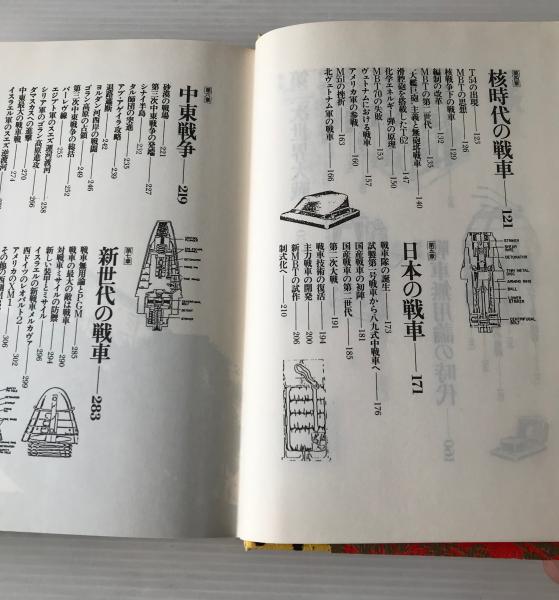 第四章
核時代の戦車──121
T54の出現 123
MBTの思想 126
核戦争下の戦車 129
編制の改革 132
MBTの第二世代 135
「大艦巨砲」主義と無砲塔戦車 140
滑腔砲を搭載したT-62 147
化学エネルギー弾の原理 151
MBT70の失敗 153
ヴェトナムにおける戦車 157
アメリカ軍の参戦 160
M551の挫折 163
北ヴェトナム軍の戦車 166
第五章
日本の戦車──171
戦車隊の誕生 173
試製第一号戦車から八九式中戦車へ 176
国産戦車の初陣 181
国産戦車の第二世代 185
第二次大戦 191
戦車技術の復活 194
主力戦車の開発 200
新MBTの試作 206
制式化へ 210
第六章
中東戦争──219
砂漠の戦場 221
第二次中東戦争の発端 227
シナイ半島 232
タル師団の突進 235
アブ・アゲイラ攻略 239
退路遮断 242
ヨルダン河西岸の戦闘 246
ゴラン高原の占領 249
第三次中東戦争の総括 252
バーレヴ線 255
エジプト軍のスエズ運河渡河 258
シリア軍のゴラン高原進攻
ダマスカス進撃 266
中東最大の戦車戦 270
イスラエル軍のスエズ逆渡河 274
第七章
新世代の戦車──283
戦車無用論とPGM 285
戦車の最大の敵は戦車 290
対戦車ミサイルの防禦 294
新しい装甲とミサイル 296
イスラエルの新戦車メルカヴァ 299
西ドイツのレオパルト2 302
アメリカのXM1 306
STRIKER
BALL
LOWER STRIKER
CENTRIFUGAL BOLT